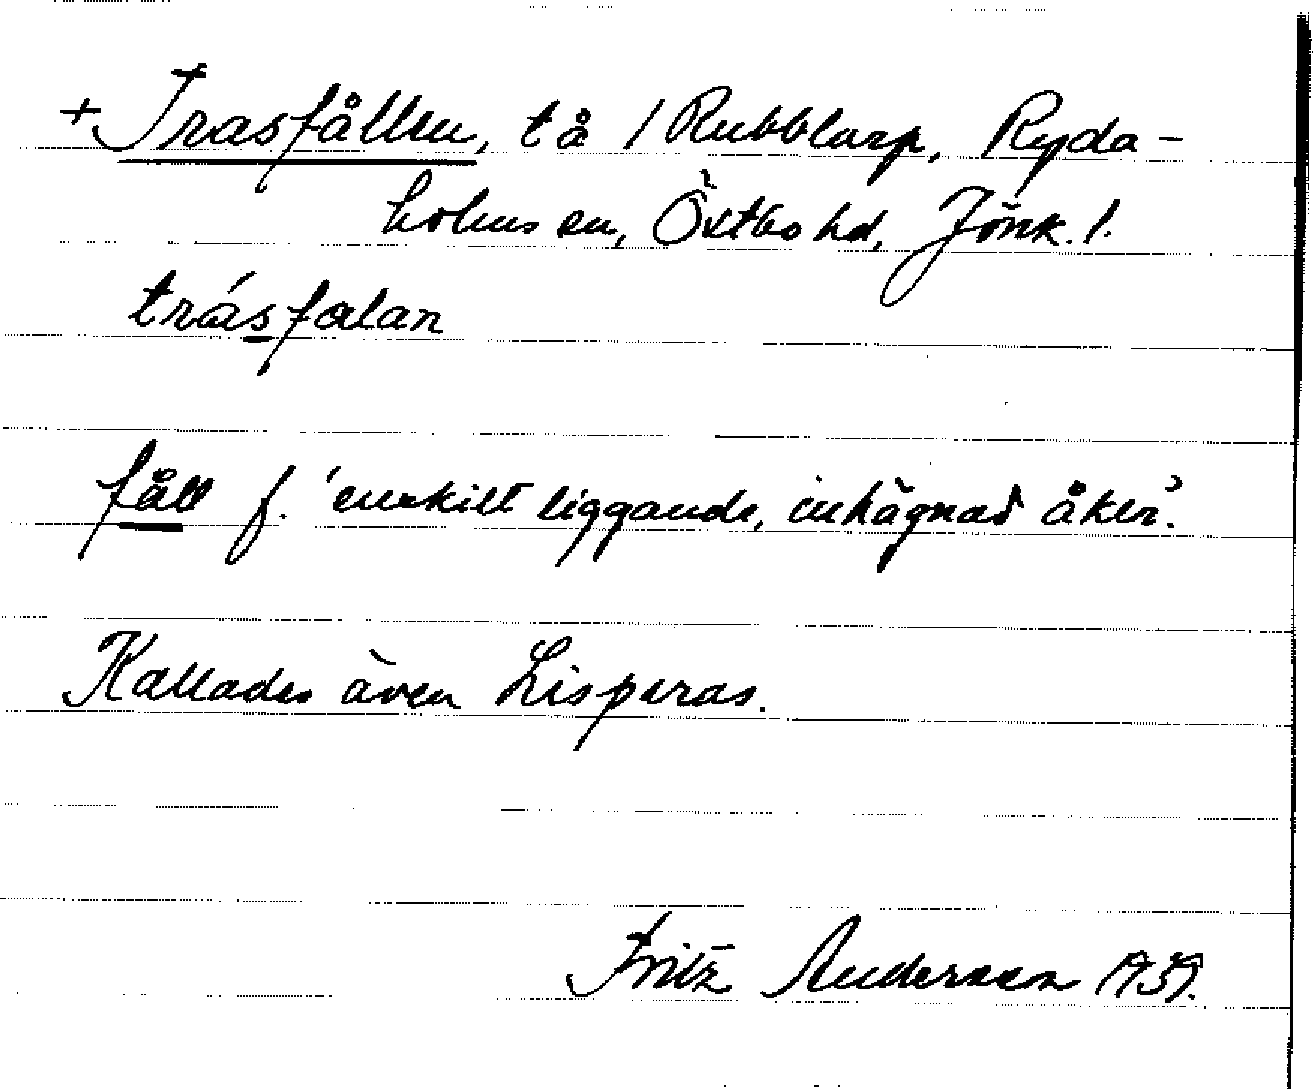 + Trasfållen, tå / Rubblarp, Ryda-
holms sn, Östbo hd, Jönk. l.
trásfalan
fåll f. 'enskilt liggande, inhägnad åker'.
Kallades även Lisperas.
Fritz Andersson 1939.